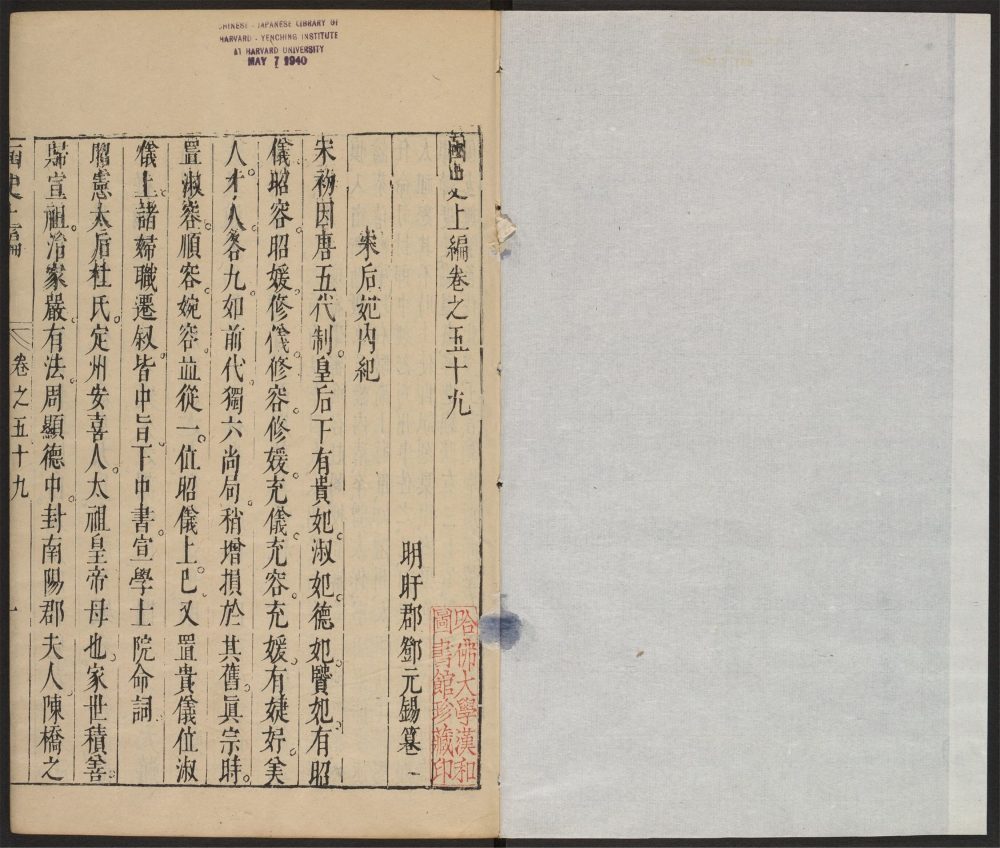 CHINESE - JAPANESE LIBRARY OF
HARVARD - YENCHING INSTITUTE
AT HARVARD UNIVERSITY
MAY 7 1940
函史上編卷之五十九
哈佛大學漢和
圖書館珍藏印
明盱郡鄧元錫纂
宋后妃内紀
宋初因唐五代制。皇后下有貴妃淑妃德妃賢妃。有昭
儀昭容昭媛。修儀修容修媛。充儀充容充媛。有婕妤。美
人。才人。各九。如前代。獨六尚局。稍增損於其舊。眞宗時。
置淑容順容婉容並從一。位昭儀上。已又置貴儀位淑
儀上。諸婦職遷敘。皆中旨下中書。宣學士院命詞
昭憲太后杜氏。定州安喜人。太祖皇帝母也。家世積善。
歸宣祖。治家嚴。有法。周顯德中。封南陽郡夫人。陳橋之
函史上編
卷之五十九
一